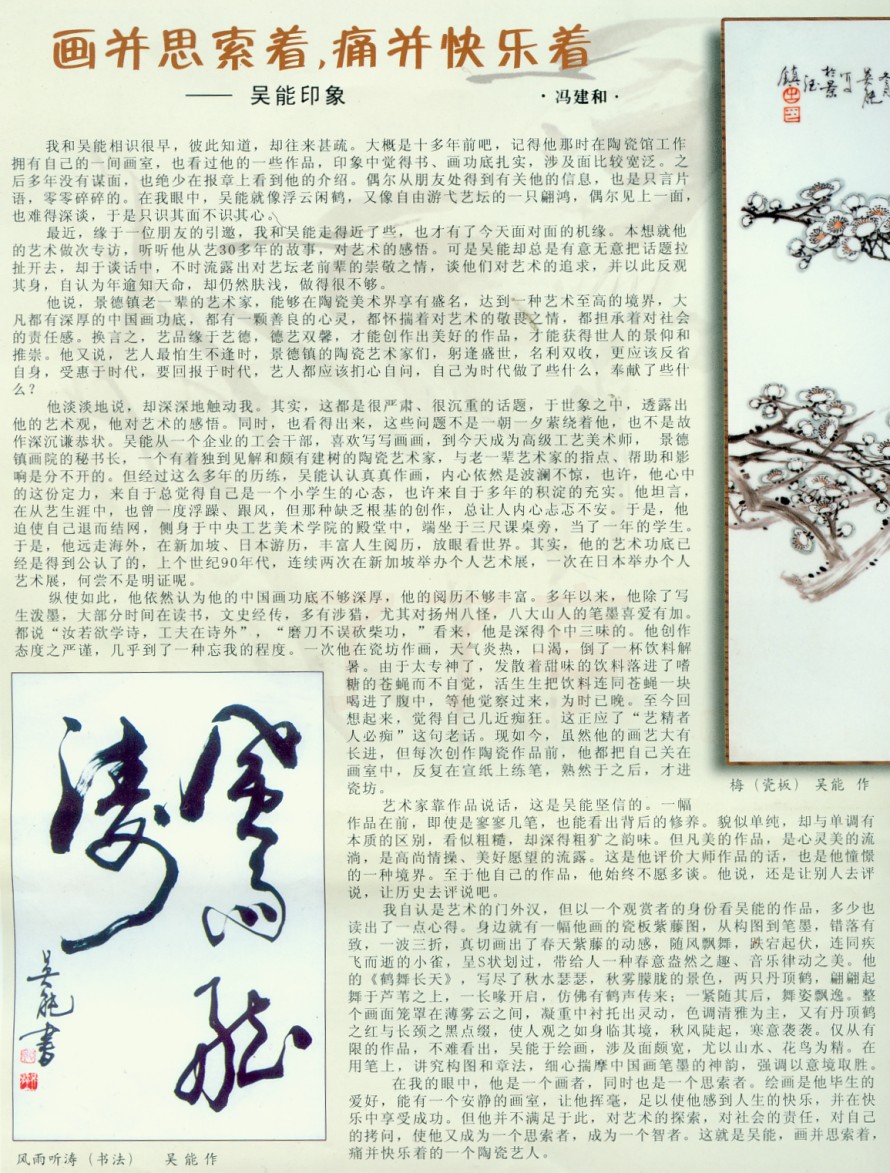 画并思索着,痛并快乐着
—— 吴能印象
·冯建和·
我和吴能相识很早，彼此知道，却往来甚疏。大概是十多年前吧，记得他那时在陶瓷馆工作
拥有自己的一间画室，也看过他的一些作品，印象中觉得书、画功底扎实，涉及面比较宽泛。之
后多年没有谋面，也绝少在报章上看到他的介绍。偶尔从朋友处得到有关他的信息，也是只言片
语，零零碎碎的。在我眼中，吴能就像浮云闲鹤，又像自由游弋艺坛的一只翩鸿，偶尔见上一面，
也难得深谈，于是只识其面不识其心。
最近，缘于一位朋友的引邀，我和吴能走得近了些，也才有了今天面对面的机缘。本想就他
的艺术做次专访，听听他从艺30多年的故事，对艺术的感悟。可是吴能却总是有意无意把话题拉
扯开去，却于谈话中，不时流露出对艺坛老前辈的崇敬之情，谈他们对艺术的追求，并以此反观
其身，自认为年逾知天命，却仍然肤浅，做得很不够。
他说，景德镇老一辈的艺术家，能够在陶瓷美术界享有盛名，达到一种艺术至高的境界，大
凡都有深厚的中国画功底，都有一颗善良的心灵，都怀揣着对艺术的敬畏之情，都担承着对社会
的责任感。换言之，艺品缘于艺德，德艺双馨，才能创作出美好的作品，才能获得世人的景仰和
推崇。他又说，艺人最怕生不逢时，景德镇的陶瓷艺术家们，躬逢盛世，名利双收，更应该反省
自身，受惠于时代，要回报于时代，艺人都应该扪心自问，自己为时代做了些什么，奉献了些什
么？
他淡淡地说，却深深地触动我。其实，这都是很严肃、很沉重的话题，于世象之中，透露出
他的艺术观，他对艺术的感悟。同时，也看得出来，这些问题不是一朝一夕萦绕着他，也不是故
作深沉谦恭状。吴能从一个企业的工会干部，喜欢写写画画，到今天成为高级工艺美术师， 景德
镇画院的秘书长，一个有着独到见解和颇有建树的陶瓷艺术家，与老一辈艺术家的指点、帮助和影
响是分不开的。但经过这么多年的历练，吴能认认真真作画，内心依然是波澜不惊，也许，他心中
的这份定力，来自于总觉得自己是一个小学生的心态，也许来自于多年的积淀的充实。他坦言，
在从艺生涯中，也曾一度浮躁、跟风，但那种缺乏根基的创作，总让人内心忐忑不安。于是，他
迫使自己退而结网，侧身于中央工艺美术学院的殿堂中，端坐于三尺课桌旁，当了一年的学生。
于是，他远走海外，在新加坡、日本游历，丰富人生阅历，放眼看世界。其实，他的艺术功底已
经是得到公认了的，上个世纪90年代，连续两次在新加坡举办个人艺术展，一次在日本举办个人
艺术展，何尝不是明证呢。
纵使如此，他依然认为他的中国画功底不够深厚，他的阅历不够丰富。多年以来，他除了写
生泼墨，大部分时间在读书，文史经传，多有涉猎，尤其对扬州八怪，八大山人的笔墨喜爱有加。
都说“汝若欲学诗，工夫在诗外”，“磨刀不误砍柴功，”看来，他是深得个中三味的。他创作
态度之严谨，几乎到了一种忘我的程度。一次他在瓷坊作画，天气炎热，口渴，倒了一杯饮料解
暑。由于太专神了，发散着甜味的饮料落进了嗜
糖的苍蝇而不自觉，活生生把饮料连同苍蝇一块
喝进了腹中，等他觉察过来，为时已晚。至今回
想起来，觉得自己几近痴狂。这正应了“艺精者
人必痴”这句老话。现如今，虽然他的画艺大有
长进，但每次创作陶瓷作品前，他都把自己关在
画室中，反复在宣纸上练笔，熟然于之后，才进
瓷坊。
艺术家靠作品说话，这是吴能坚信的。一幅
作品在前，即使是寥寥几笔，也能看出背后的修养。貌似单纯，却与单调有
本质的区别，看似粗糙，却深得粗犷之韵味。但凡美的作品，是心灵美的流
淌，是高尚情操、美好愿望的流露。这是他评价大师作品的话，也是他憧憬
的一种境界。至于他自己的作品，他始终不愿多谈。他说，还是让别人去评
说，让历史去评说吧。
我自认是艺术的门外汉，但以一个观赏者的身份看吴能的作品，多少也
读出了一点心得。身边就有一幅他画的瓷板紫藤图，从构图到笔墨，错落有
致，一波三折，真切画出了春天紫藤的动感，随风飘舞，跌宕起伏，连同疾
飞而逝的小雀，呈S状划过，带给人一种春意盎然之趣、音乐律动之美。他
的《鹤舞长天》，写尽了秋水瑟瑟，秋雾朦胧的景色，两只丹顶鹤，翩翩起
舞于芦苇之上，一长喙开启，仿佛有鹤声传来；一紧随其后，舞姿飘逸。整
个画面笼罩在薄雾云之间，凝重中衬托出灵动，色调清雅为主，又有丹顶鹤
之红与长颈之黑点缀，使人观之如身临其境，秋风陡起，寒意袭袭。仅从有
限的作品，不难看出，吴能于绘画，涉及面颇宽，尤以山水、花鸟为精。在
用笔上，讲究构图和章法，细心揣摩中国画笔墨的神韵，强调以意境取胜。
在我的眼中，他是一个画者，同时也是一个思索者。绘画是他毕生的
爱好，能有一个安静的画室，让他挥毫，足以使他感到人生的快乐，并在快
乐中享受成功。但他并不满足于此，对艺术的探索，对社会的责任，对自己
的拷问，使他又成为一个思索者，成为一个智者。这就是吴能，画并思索着，
痛并快乐着的一个陶瓷艺人。
梅（瓷板） 吴能 作
吴能書
风雨听涛（书法） 吴能作